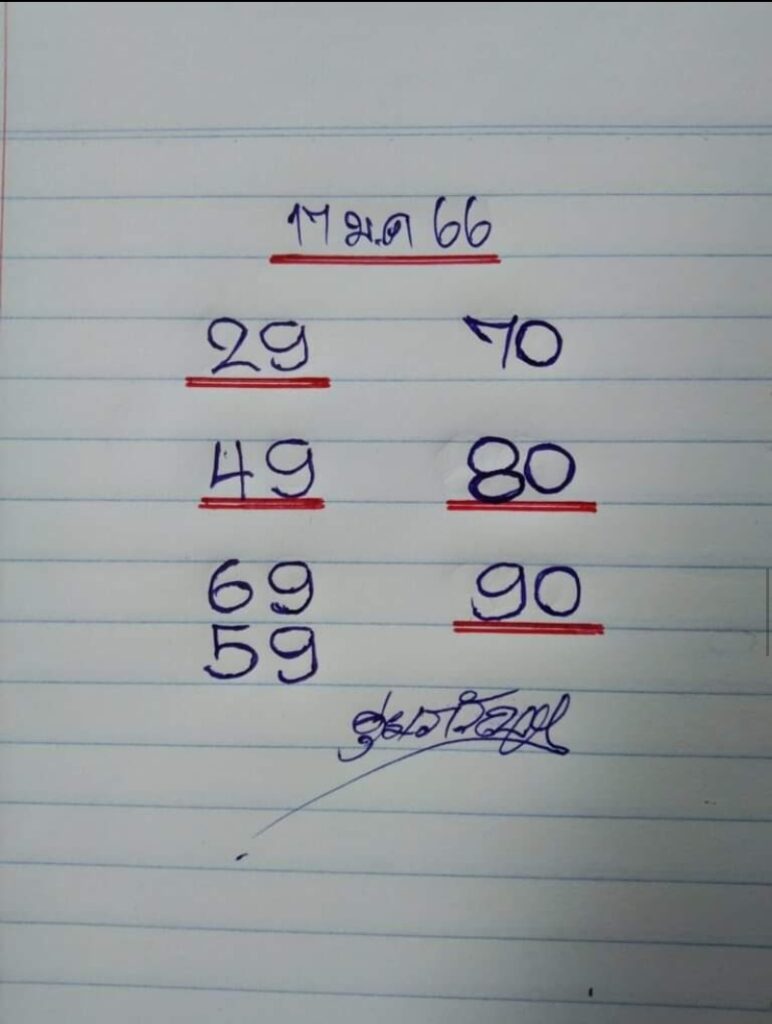 17 ม.ค 66
29 70
49 80
69 90
59